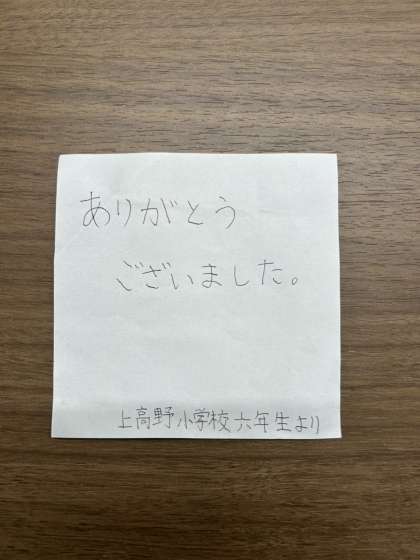 ありがとう
ございました。
上高野小学校六年生より